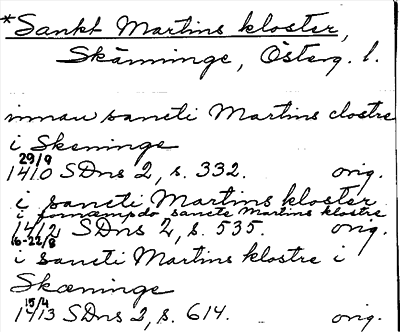 *Sankt Martins kloster,
Skänninge, Österg. l.
innan sancti Martins clostre
i Skeninge
29/9
1410 SDns 2, s. 332. orig.
i sancti Martins kloster
i fornæmpdo sancte Martins klostre
1412 SDns 2, s. 535. orig.
16-22/8
i sancti Martins klostre i
Skæninge
15/4
1413 SDns 2, s. 614. orig.